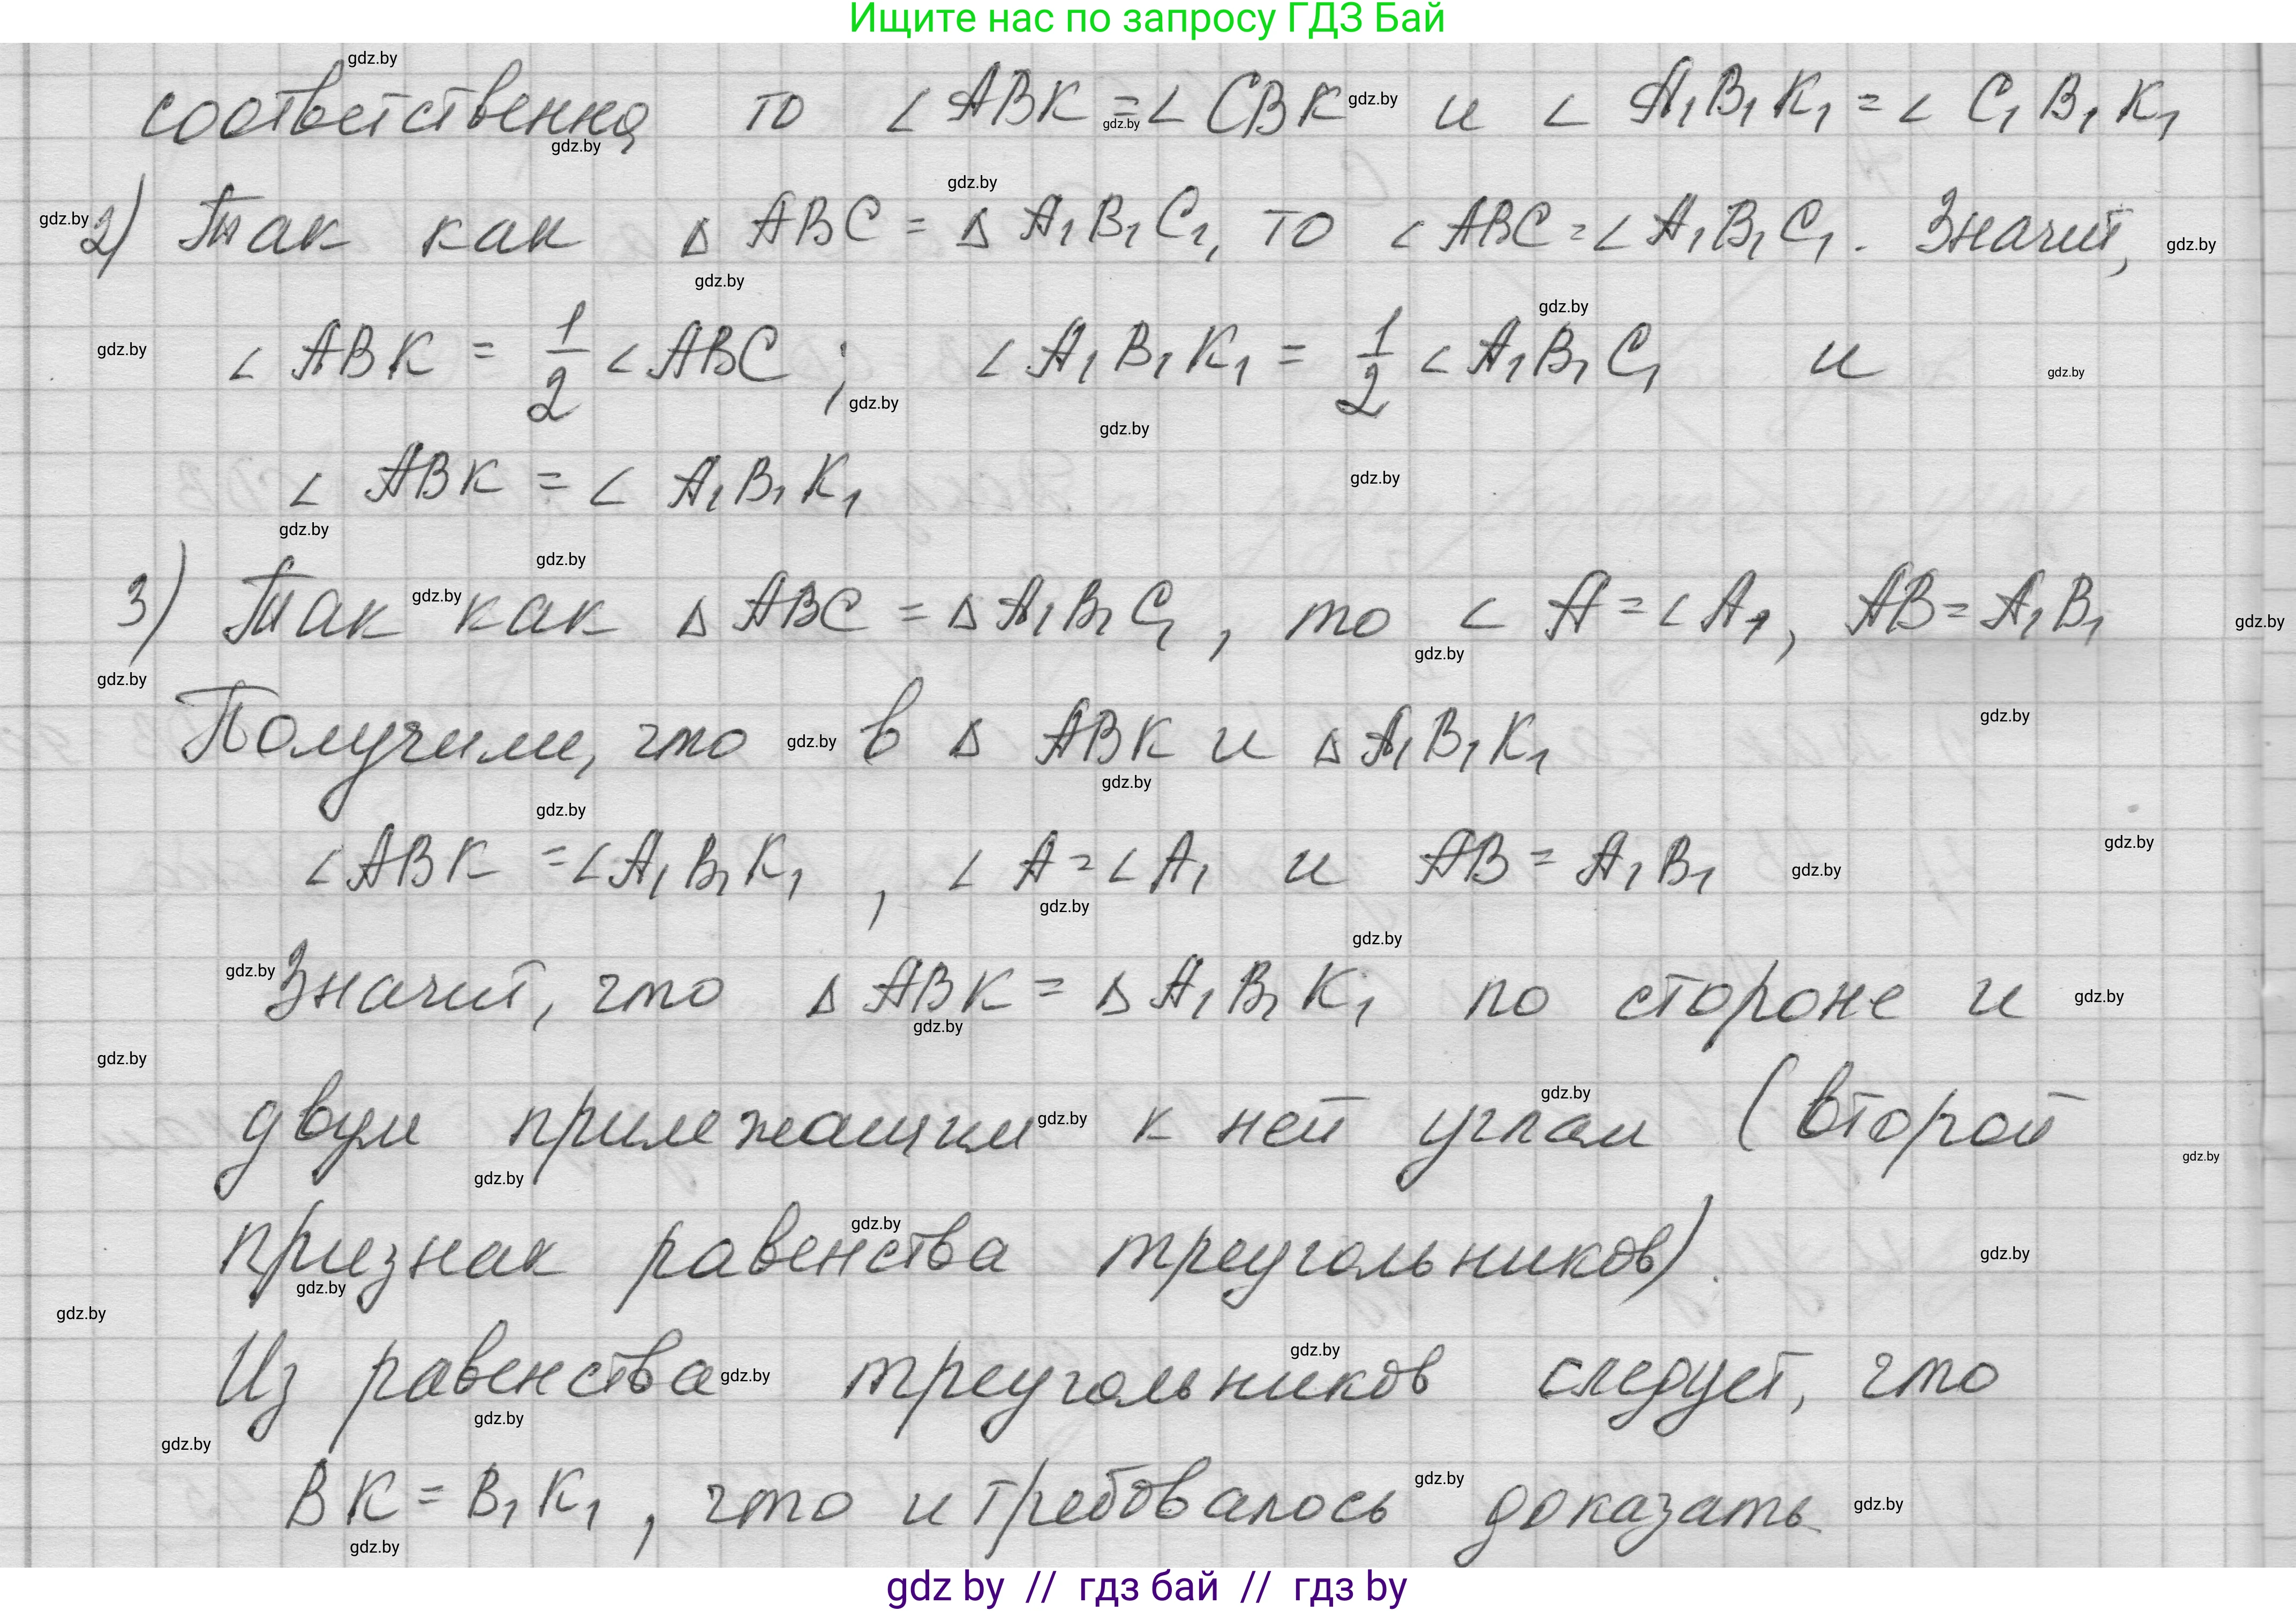 Ищите нас по запросу ГДЗ Бай
соответственно, то ∠ ABK = ∠ CBK и ∠ A₁B₁K₁ = ∠ C₁B₁K₁
2) Так как Δ ABC = Δ A₁B₁C₁, то ∠ ABC = ∠ A₁B₁C₁. Значит,
∠ ABK = 1/2 ∠ ABC ; ∠ A₁B₁K₁ = 1/2 ∠ A₁B₁C₁ и
∠ ABK = ∠ A₁B₁K₁
3) Так как Δ ABC = Δ A₁B₁C₁, то ∠ A = ∠ A₁, AB = A₁B₁
Получили, что в Δ ABK и Δ A₁B₁K₁
∠ ABK = ∠ A₁B₁K₁, ∠ A = ∠ A₁ и AB = A₁B₁
Значит, что Δ ABK = Δ A₁B₁K₁ по стороне и
двум прилежащим к ней углам (второй
признак равенства треугольников).
Из равенства треугольников следует, что
BK = B₁K₁, что и требовалось доказать
gdz by // гдз бай // гдз by